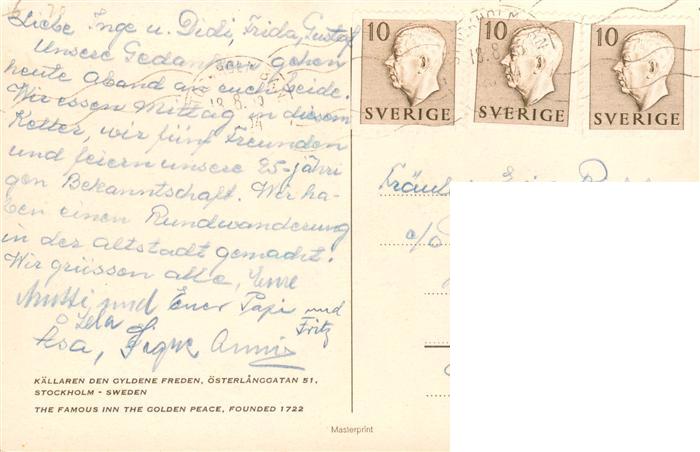 Liebe Inge u. Didi, Frida, Gustaf
Unsere Gedanken gehen
heute abend an euch beide.
Wir essen Mittag in diesem
Keller, wir fünf Freunden
und feiern unsere 25-jähri
gen Bekanntschaft. Wir ha-
ben einen Rundwanderung
in der Altstadt gemacht.
Wir grüssen alle, Eure
Mutti und Euer Papi und
Fritz
Åsa, Signe Anni
KÄLLAREN DEN GYLDENE FREDEN, ÖSTERLÅNGGATAN 51,
STOCKHOLM - SWEDEN
THE FAMOUS INN THE GOLDEN PEACE, FOUNDED 1722
Masterprint
10 SVERIGE
10 SVERIGE
10 SVERIGE
18.8
c/o